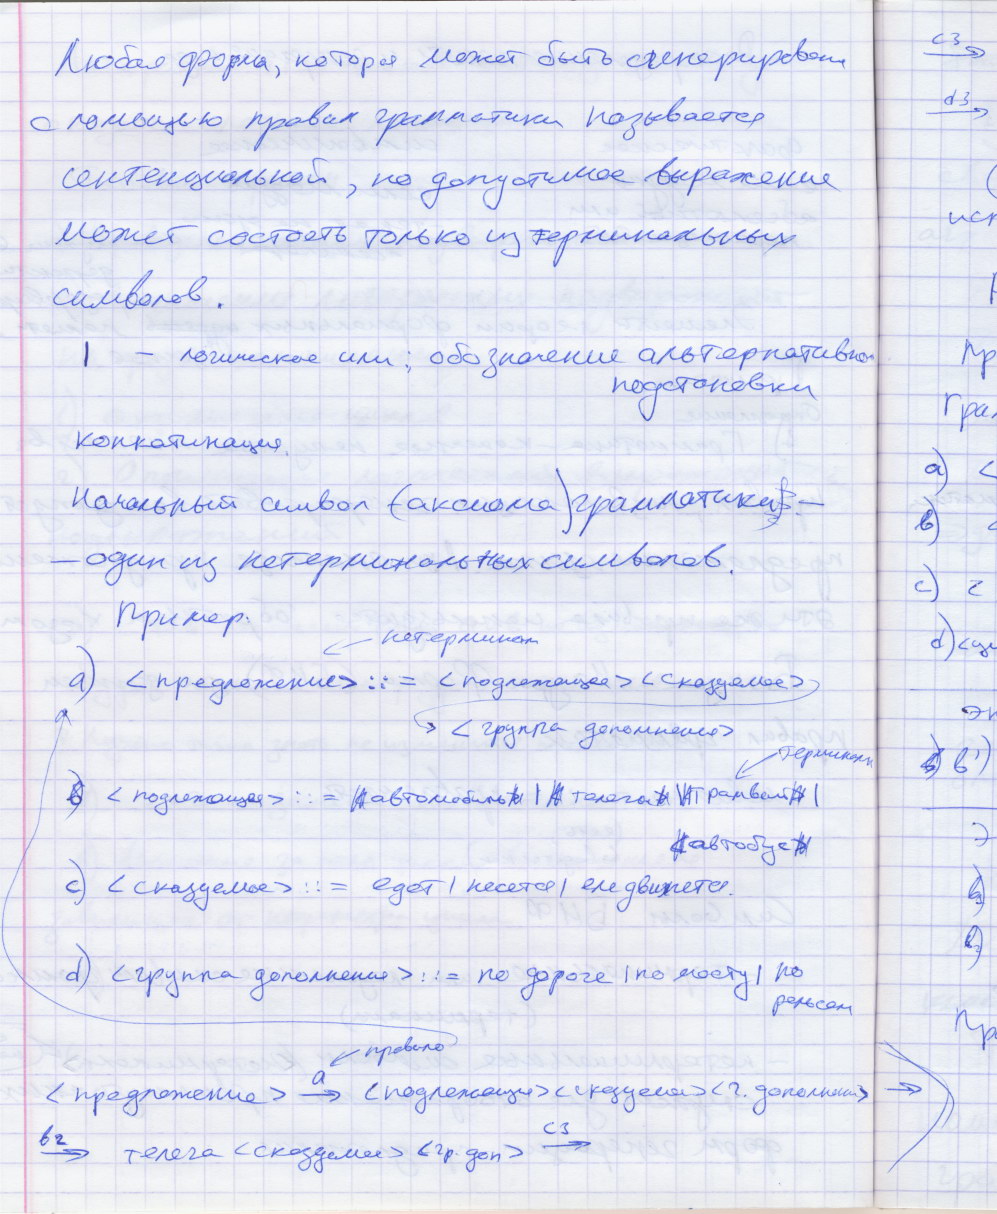 Любая форма, которая может быть сгенерирована
с помощью правил грамматики называется
сентенциальной, но допустимое выражение
может состоять только из терминальных
символов.
| — логическое или; обозначение альтернативной
подстановки
конкатинация.
Начальный символ (аксиома) грамматики —
— один из нетерминальных символов.
Пример:
нетерминал
a) <предложение> ::= <подлежащее> <сказуемое>
<группа дополнения>
терминалы
b) <подлежащее> ::= автомобиль | телега | трамвай |
автобус
c) <сказуемое> ::= едет | несется | еле движется.
d) <группа дополнения> ::= по дороге | по мосту | по
рельсам
правило
<предложение> a→ <подлежащее> <сказуемое> <г. дополнения> →
b2→ телега <сказуемое> <гр. доп> c3→
c3→
d3→
a) <
b) <
c) 2
d) <
b')